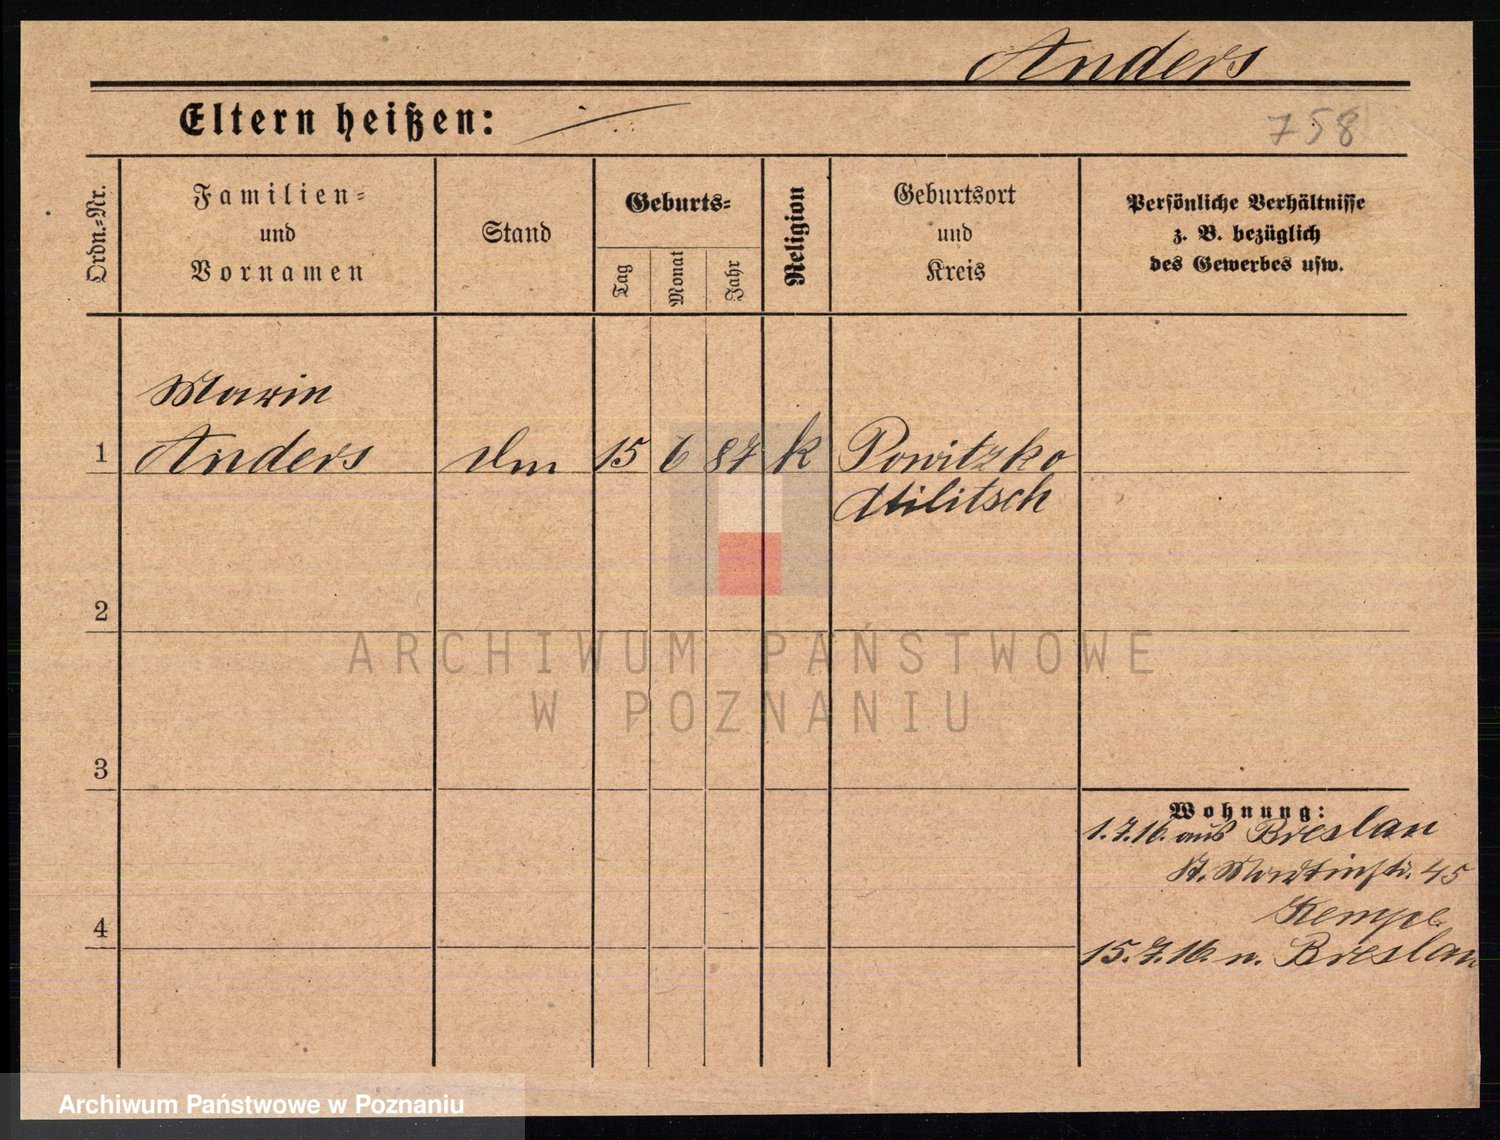 Anders
Eltern heißen:
758
Ordn.-Nr.
Familien-
und
Vornamen
Stand
Geburts-
Tag
Monat
Jahr
Religion
Geburtsort
und
Kreis
Persönliche Verhältnisse
z. B. bezüglich
des Gewerbes usw.
Marie
1 Anders 15 6 87 k Powitzko
Militsch
2
ARCHIWUM PAŃSTWOWE
W POZNANIU
3
Wohnung:
1.7.16. aus Breslau
St. Martinstr. 45
4
15.7.16. n. Breslau
Archiwum Państwowe w Poznaniu